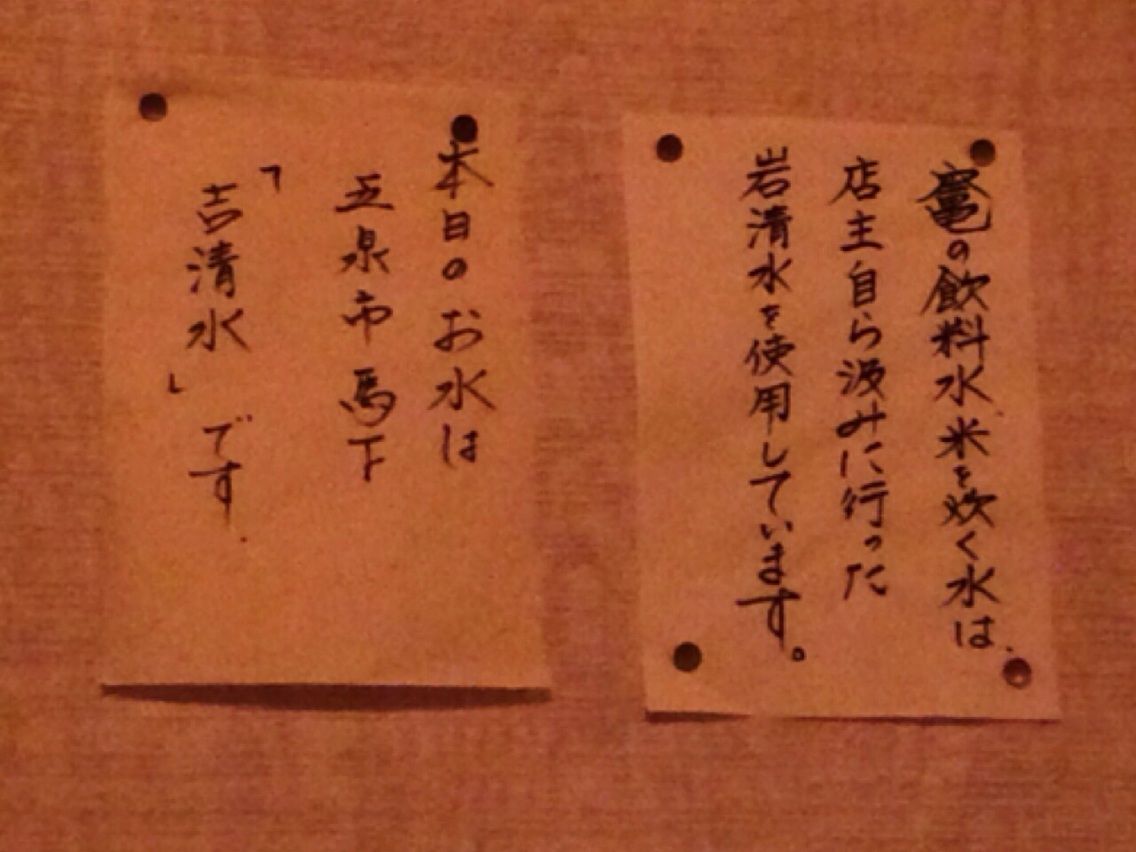 竈の飲料水、米を炊く水は、
店主自ら汲みに行った
岩清水を使用しています。
本日のお水は
五泉市馬下
「吉清水」です.